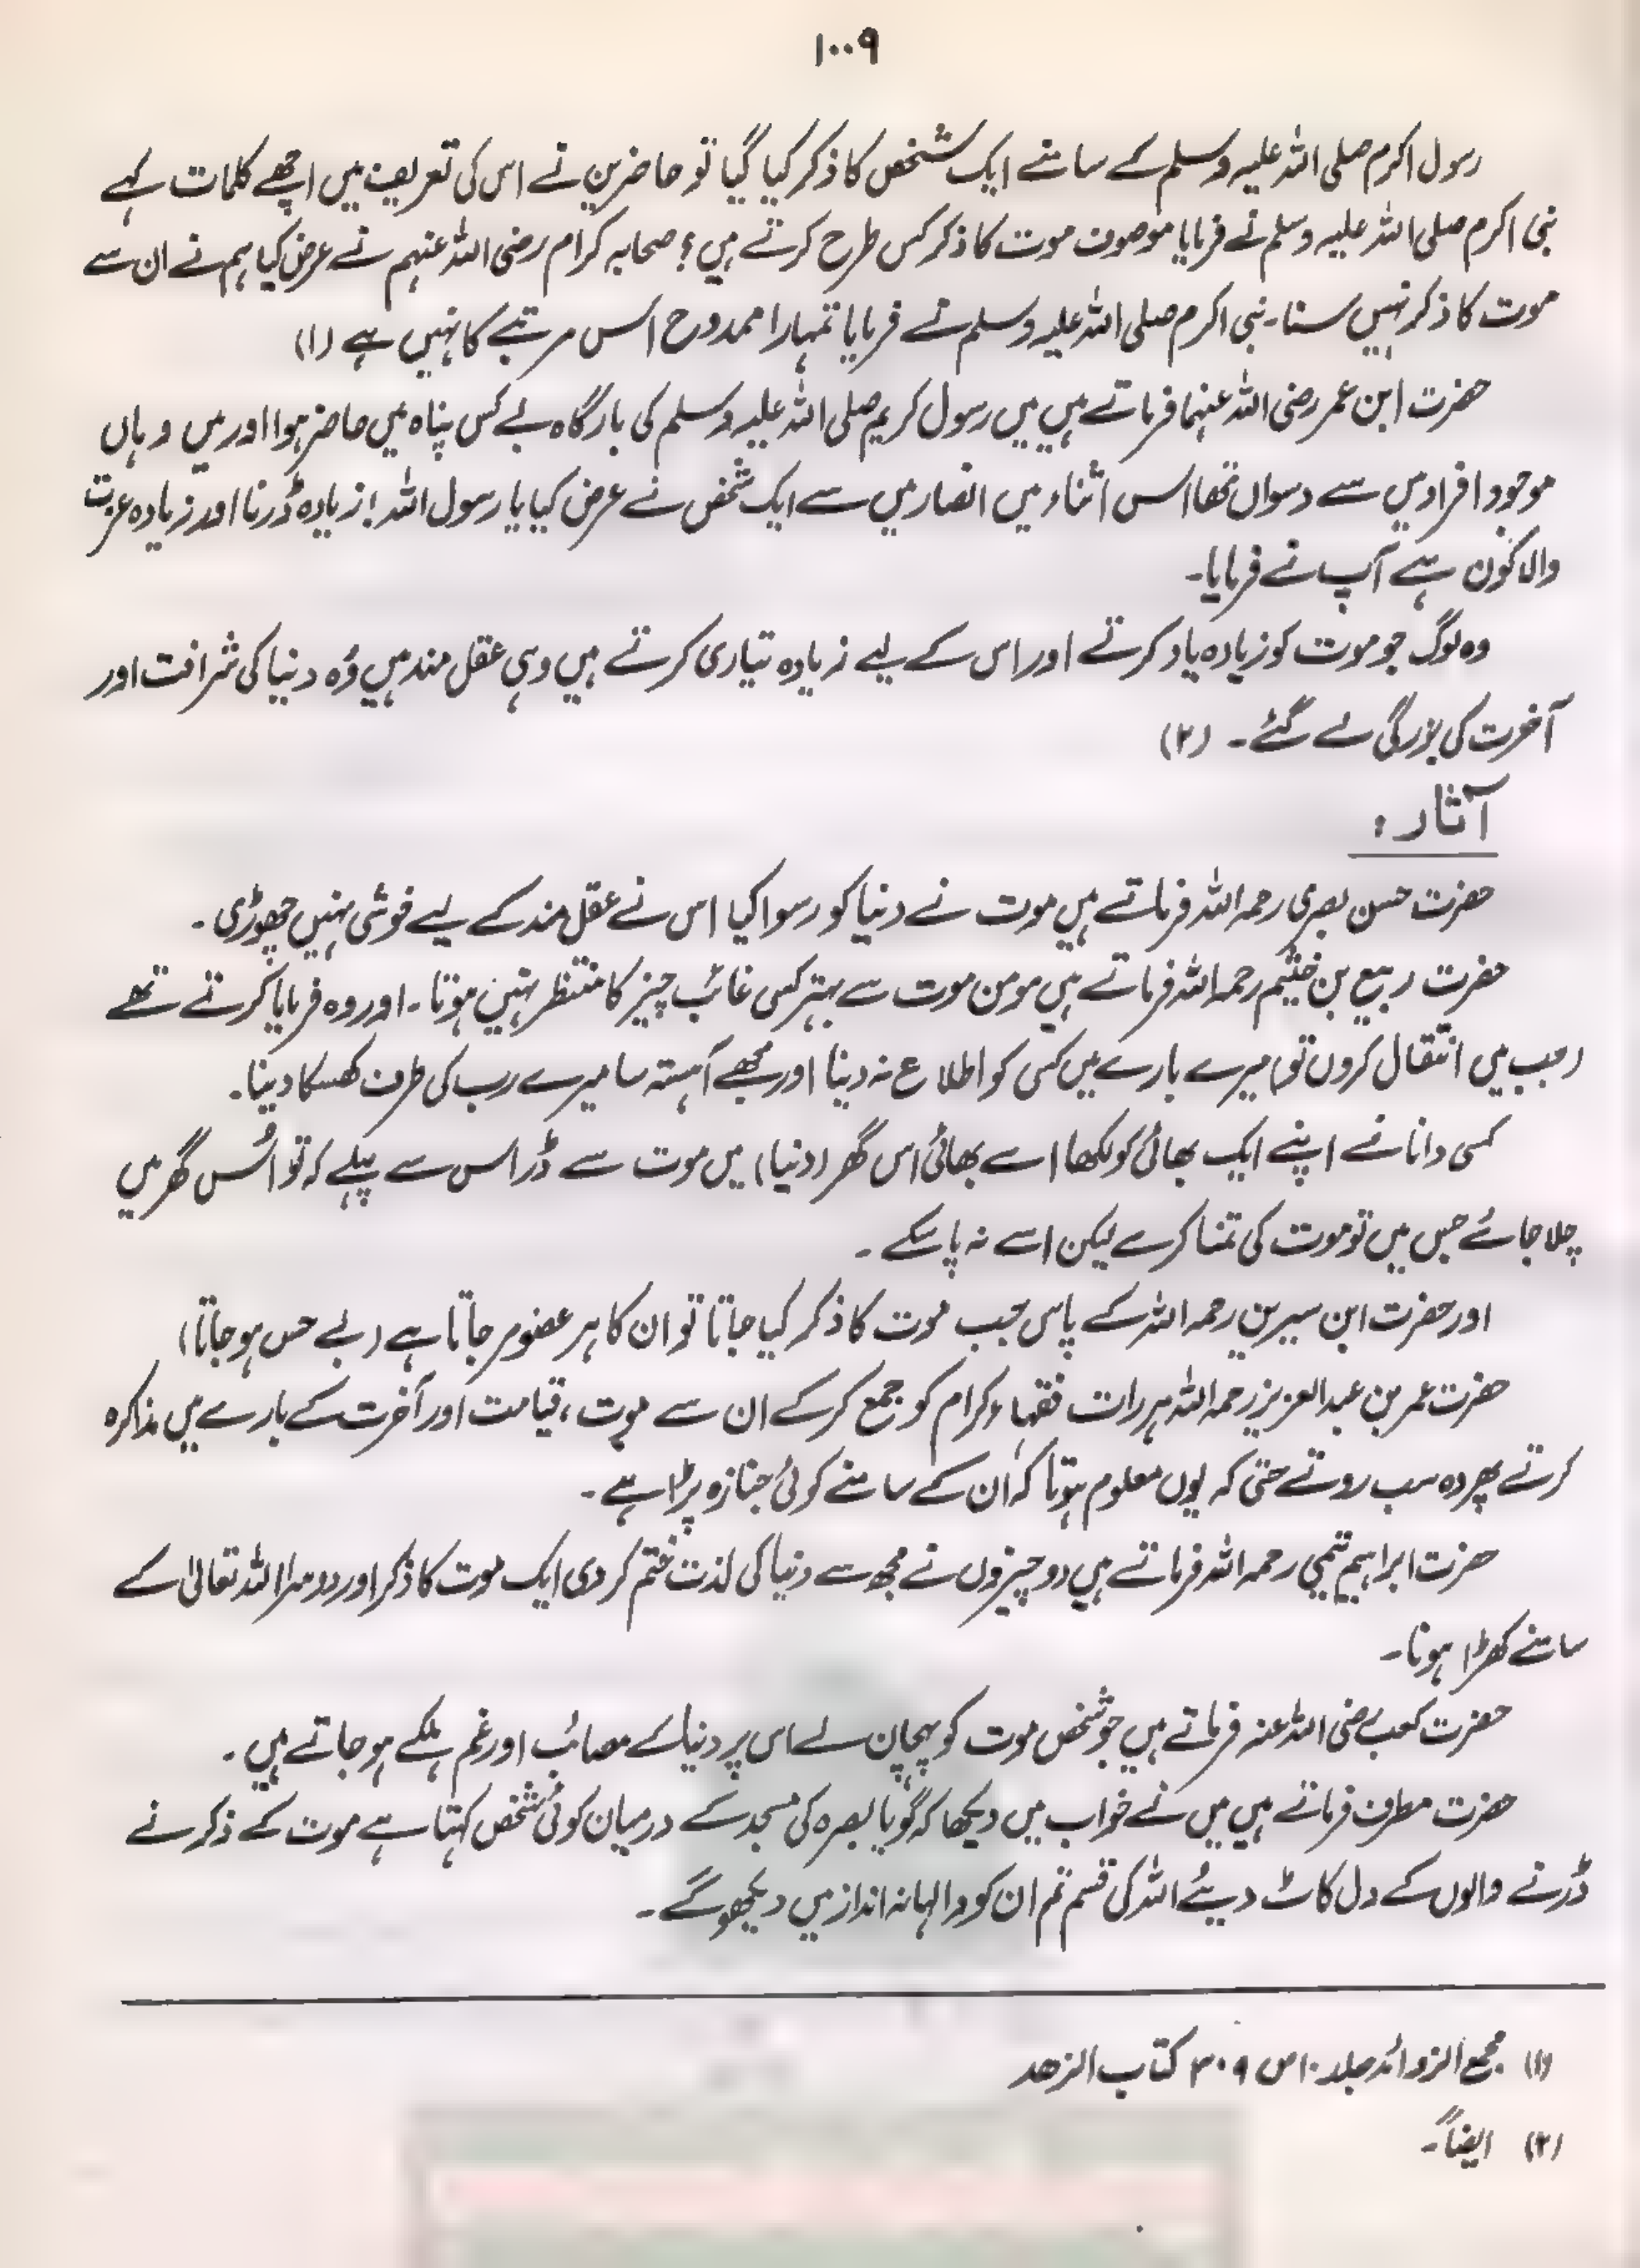 ۱۰۰۹
رسول اکرم صلی اللہ علیہ وسلم کے سامنے ایک شخص کا ذکر کیا گیا تو حاضرین نے اس کی تعریف میں اچھے کلمات کہے
نبی اکرم صلی اللہ علیہ وسلم نے فرمایا موصوف موت کا ذکر کس طرح کرتے ہیں؟ صحابہ کرام رضی اللہ عنہم نے عرض کیا ہم نے ان سے
موت کا ذکر نہیں سنا۔ نبی اکرم صلی اللہ علیہ وسلم نے فرمایا تمہارا ممدوح اس مرتبے کا نہیں ہے (۱)
حضرت ابن عمر رضی اللہ عنہما فرماتے ہیں میں رسول کریم صلی اللہ علیہ وسلم کی بارگاہ بے کس پناہ میں حاضر ہوا اور میں وہاں
موجود افراد میں سے دسواں تھا اس اثناء میں انصار میں سے ایک شخص نے عرض کیا یا رسول اللہ! زیادہ ڈرنا اور زیادہ عزت
والا کون ہے آپ نے فرمایا۔
وہ لوگ جو موت کو زیادہ یاد کرتے اور اس کے لیے زیادہ تیاری کرتے ہیں وہی عقل مند ہیں وُہ دنیا کی شرافت اور
آخرت کی بزرگی لے گئے۔ (۲)
آثار:
حضرت حسن بصری رحمہ اللہ فرماتے ہیں موت نے دنیا کو رسوا کیا اس نے عقل مند کے لیے خوشی نہیں چھوڑی۔
حضرت ربیع بن خثیم رحمہ اللہ فرماتے ہیں مومن موت سے بہتر کسی غائب چیز کا منتظر نہیں ہوتا۔ اور وہ فرمایا کرتے تھے
(جب میں انتقال کروں تو) میرے بارے میں کسی کو اطلاع نہ دینا اور مجھے آہستہ سا میرے رب کی طرف کھسکا دینا۔
کسی دانا نے اپنے ایک بھائی کو لکھا اے بھائی اس گھر (دنیا) میں موت سے ڈر اس سے پہلے کہ تو اُس گھر میں
چلا جائے جس میں تو موت کی تمنا کرے لیکن اسے نہ پا سکے۔
اور حضرت ابن سیرین رحمہ اللہ کے پاس جب موت کا ذکر کیا جاتا تو ان کا ہر عضو مر جاتا ہے (بے حس ہو جاتا)
حضرت عمر بن عبد العزیز رحمہ اللہ ہر رات فقہاء کرام کو جمع کر کے ان سے موت، قیامت اور آخرت کے بارے میں مذاکرہ
کرتے پھر وہ سب روتے حتیٰ کہ یوں معلوم ہوتا کہ اُن کے سامنے کوئی جنازہ پڑا ہے۔
حضرت ابراہیم تیمی رحمہ اللہ فرماتے ہیں دو چیزوں نے مجھ سے دنیا کی لذت ختم کر دی ایک موت کا ذکر اور دوسرا اللہ تعالیٰ کے
سامنے کھڑا ہونا۔
حضرت کعب رضی اللہ عنہ فرماتے ہیں جو شخص موت کو پہچان لے اس پر دنیا کے مصائب اور غم ہلکے ہو جاتے ہیں۔
حضرت مطرف فرماتے ہیں میں نے خواب میں دیکھا کہ گویا بصرہ کی مسجد کے درمیان کوئی شخص کہتا ہے موت کے ذکر نے
ڈرنے والوں کے دل کاٹ دیئے اللہ کی قسم تم ان کو والہانہ انداز میں دیکھو گے۔
(۱) مجمع الزوائد جلد ۱۰ ص ۳۰۹ کتاب الزھد
(۲) ایضاً۔